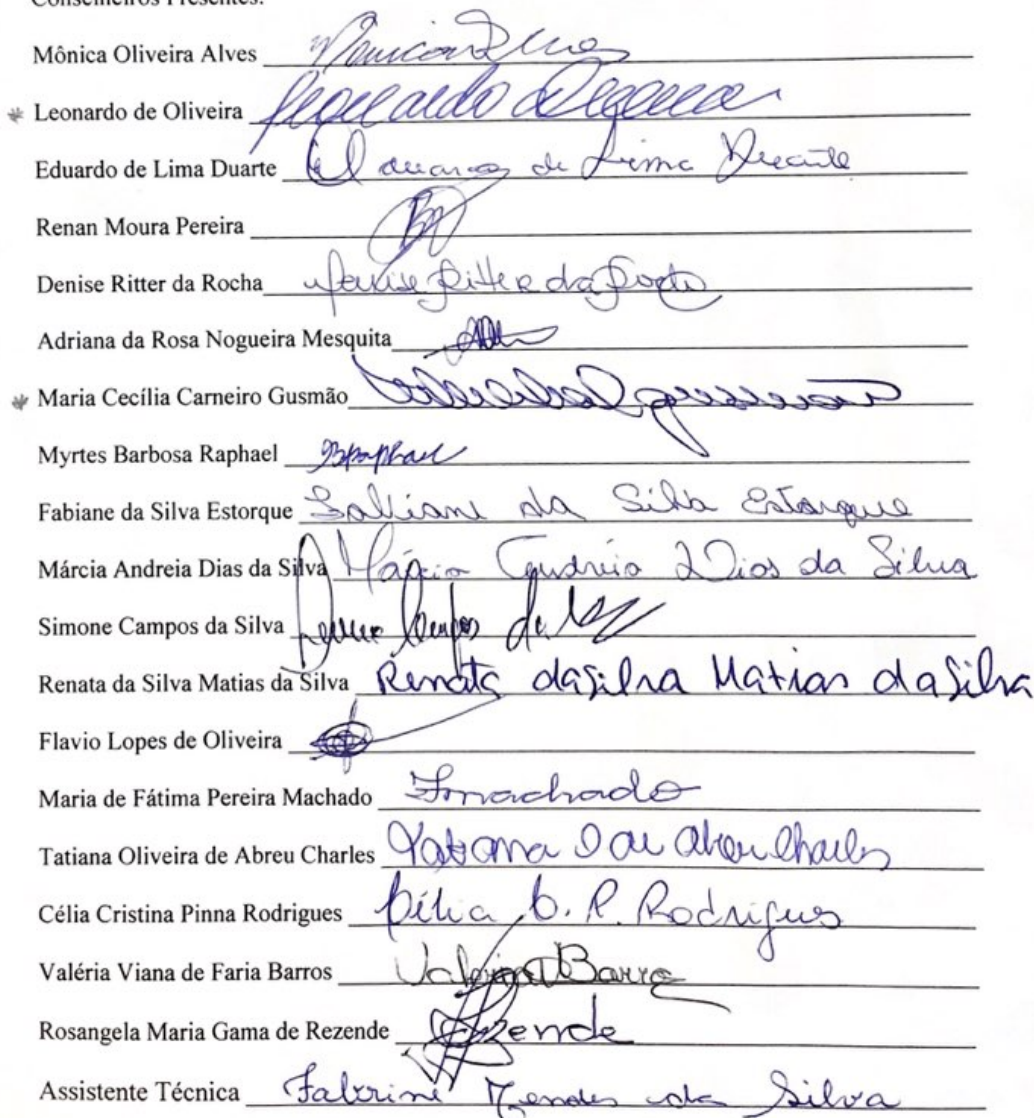 Conselheiros Presentes:
Mônica Oliveira Alves
Leonardo de Oliveira Leonardo
Eduardo de Lima Duarte Eduardo de Lima Duarte
Renan Moura Pereira
Denise Ritter da Rocha Denise Ritter da Rocha
Adriana da Rosa Nogueira Mesquita
Maria Cecília Carneiro Gusmão
Myrtes Barbosa Raphael
Fabiane da Silva Estorque Fabiane da Silva Estorque
Márcia Andreia Dias da Silva Márcia Andreia Dias da Silva
Simone Campos da Silva
Renata da Silva Matias da Silva Renata da Silva Matias da Silva
Flavio Lopes de Oliveira
Maria de Fátima Pereira Machado Fmachado
Tatiana Oliveira de Abreu Charles Tatiana O de Abreu Charles
Célia Cristina Pinna Rodrigues Célia C. P. Rodrigues
Valéria Viana de Faria Barros
Rosangela Maria Gama de Rezende Rezende
Assistente Técnica Fabrini Mendes da Silva